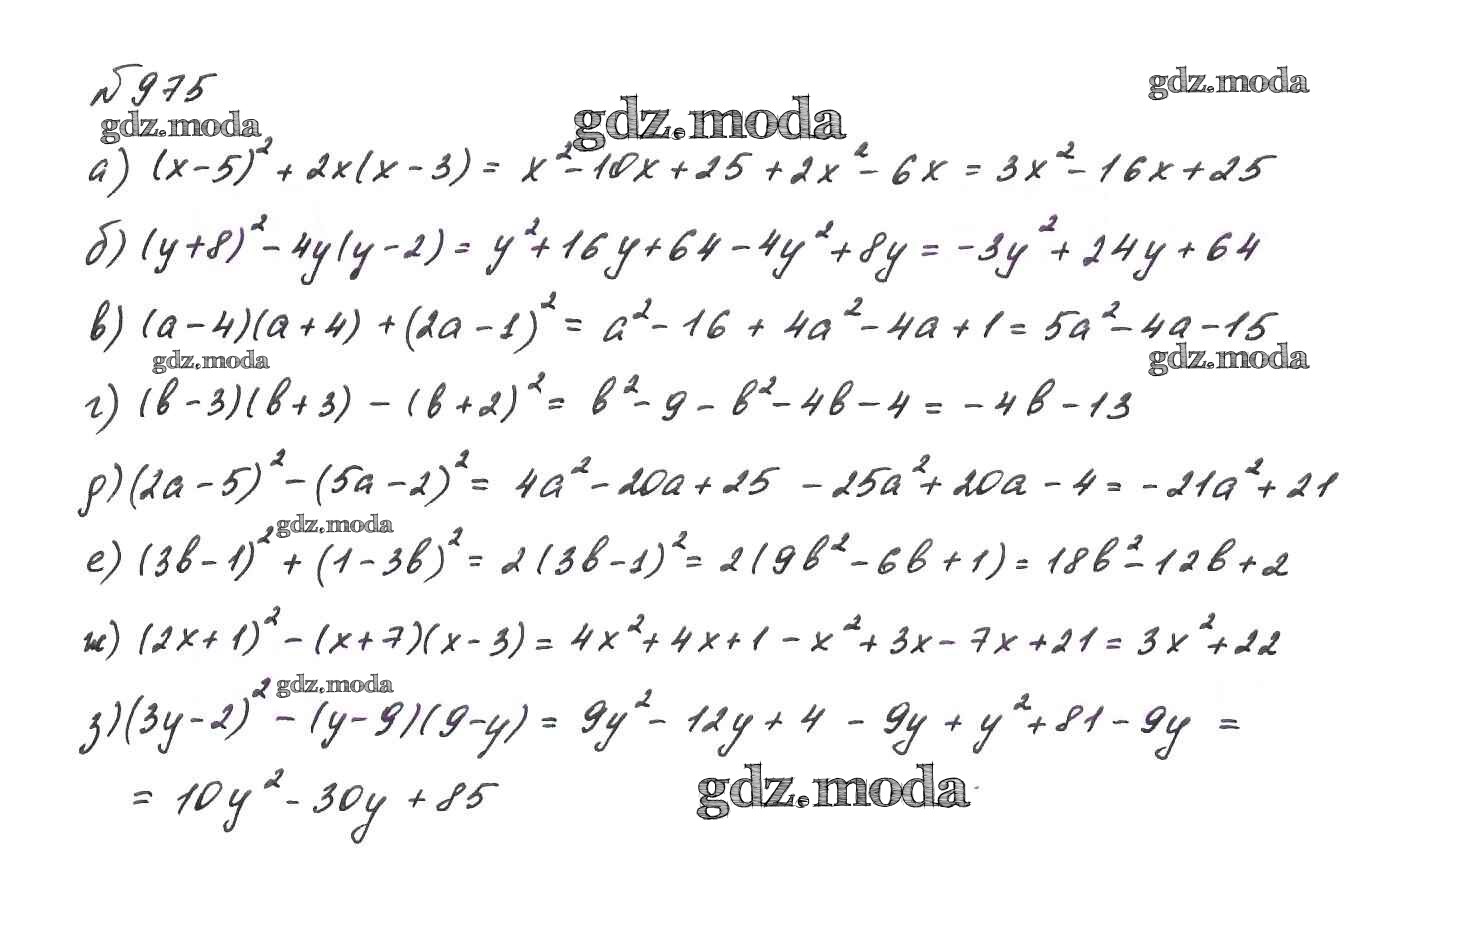 №975
gdz.moda
gdz.moda
gdz.moda
а) (x-5)² + 2x(x-3) = x²-10x+25+2x²-6x = 3x²-16x+25
б) (y+8)²-4y(y-2) = y²+16y+64-4y²+8y = -3y²+24y+64
в) (a-4)(a+4)+(2a-1)² = a²-16+4a²-4a+1 = 5a²-4a-15
gdz.moda
gdz.moda
г) (b-3)(b+3) - (b+2)² = b²-9-b²-4b-4 = -4b-13
д) (2a-5)²-(5a-2)² = 4a²-20a+25 -25a²+20a-4 = -21a²+21
gdz.moda
е) (3b-1)² + (1-3b)² = 2(3b-1)² = 2(9b²-6b+1) = 18b²-12b+2
ж) (2x+1)² - (x+7)(x-3) = 4x²+4x+1-x²+3x-7x+21 = 3x²+22
gdz.moda
з) (3y-2)² - (y-9)(9-y) = 9y²-12y+4 - 9y+y²+81-9y =
= 10y²-30y+85
gdz.moda